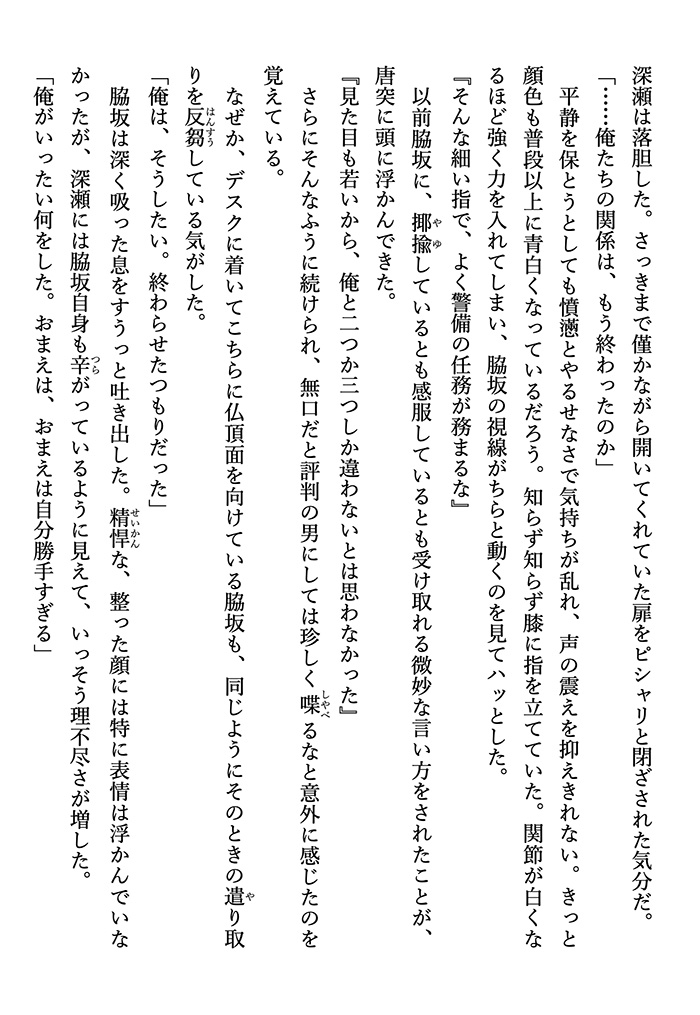 深瀬は落胆した。さっきまで僅かながら開いてくれていた扉をピシャリと閉ざされた気分だ。
「……俺たちの関係は、もう終わったのか」
平静を保とうとしても憤懣とやるせなさで気持ちが乱れ、声の震えを抑えきれない。きっと
顔色も普段以上に青白くなっているだろう。知らず知らず膝に指を立てていた。関節が白くな
るほど強く力を入れてしまい、脇坂の視線がちらと動くのを見てハッとした。
『そんな細い指で、よく警備の任務が務まるな』
以前脇坂に、揶揄しているとも感服しているとも受け取れる微妙な言い方をされたことが、
唐突に頭に浮かんできた。
『見た目も若いから、俺と二つか三つしか違わないとは思わなかった』
さらにそんなふうに続けられ、無口だと評判の男にしては珍しく喋るなと意外に感じたのを
覚えている。
なぜか、デスクに着いてこちらに仏頂面を向けている脇坂も、同じようにそのときの遣り取
りを反芻している気がした。
「俺は、そうしたい。終わらせたつもりだった」
脇坂は深く吸った息をすうっと吐き出した。精悍な、整った顔には特に表情は浮かんでいな
かったが、深瀬には脇坂自身も辛がっているように見えて、いっそう理不尽さが増した。
「俺がいったい何をした。おまえは、おまえは自分勝手すぎる」